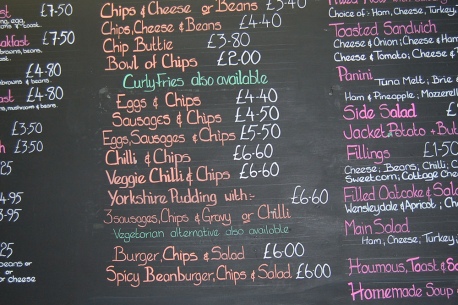 £7.50
£7.50
£4.80
£4.80
£3.50
£3.50
Chips & Cheese or Beans
Chips, Cheese & Beans £4.40
Chip Buttie £3.80
Bowl of Chips £2.00
Curly Fries also available
Eggs & Chips £4.40
Sausages & Chips £4.50
Eggs, Sausages & Chips £5.50
Chilli & Chips £6.60
Veggie Chilli & Chips £6.60
Yorkshire Pudding with:- £6.60
3 sausages, Chips & Gravy or Chilli
Vegetarian alternative also available
Burger, Chips & Salad £6.00
Spicy Beanburger, Chips & Salad £6.00
Choice of : Ham, Cheese, Turkey,
Toasted Sandwich
Cheese & Onion; Cheese & Ham
Cheese & Tomato; Cheese &
Panini Tuna Melt; Brie &
Ham & Pineapple; Mozzarell
Side Salad £
Jacket Potato + But
Fillings £1.50
Cheese; Beans, Chilli; C
Sweetcorn; Cottage Chee
Filled Oatcake & Sala
Wensleydale & Apricot ; Ch
Main Salad
Ham; Cheese, Turkey,
Houmous, Toast & Sa
Homemade Soup